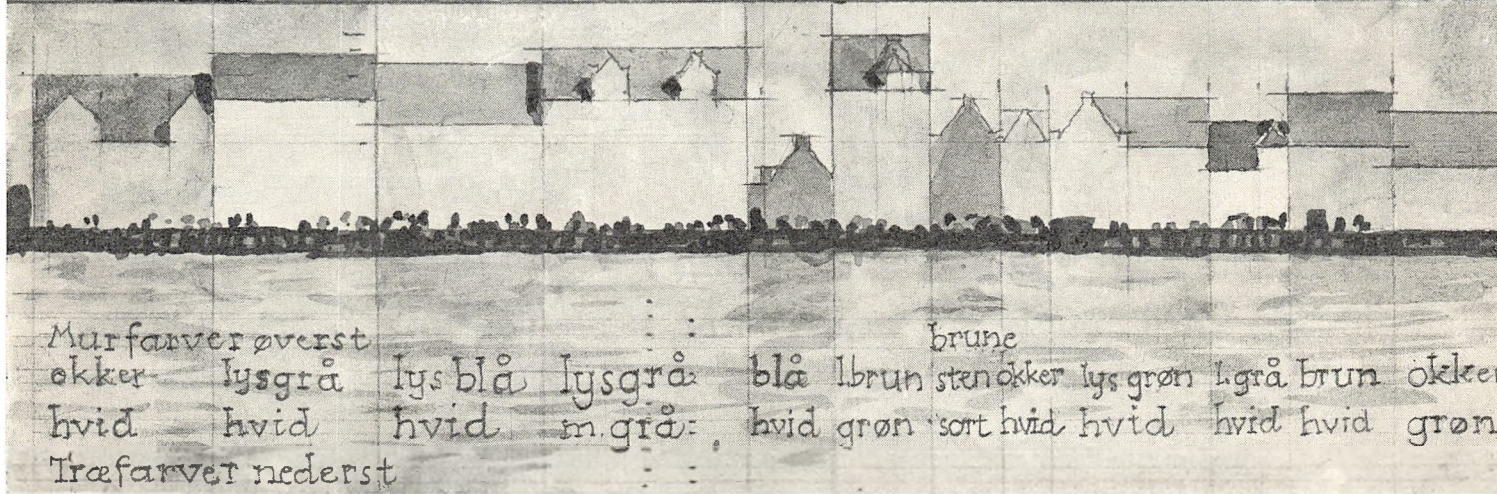 Murfarver øverst
brune
okker lysgrå lys blå lysgrå: blå l.brun sten okker lys grøn l.grå brun okke
hvid hvid hvid m.grå: hvid grøn sort hvid hvid hvid hvid grøn
Træfarver nederst